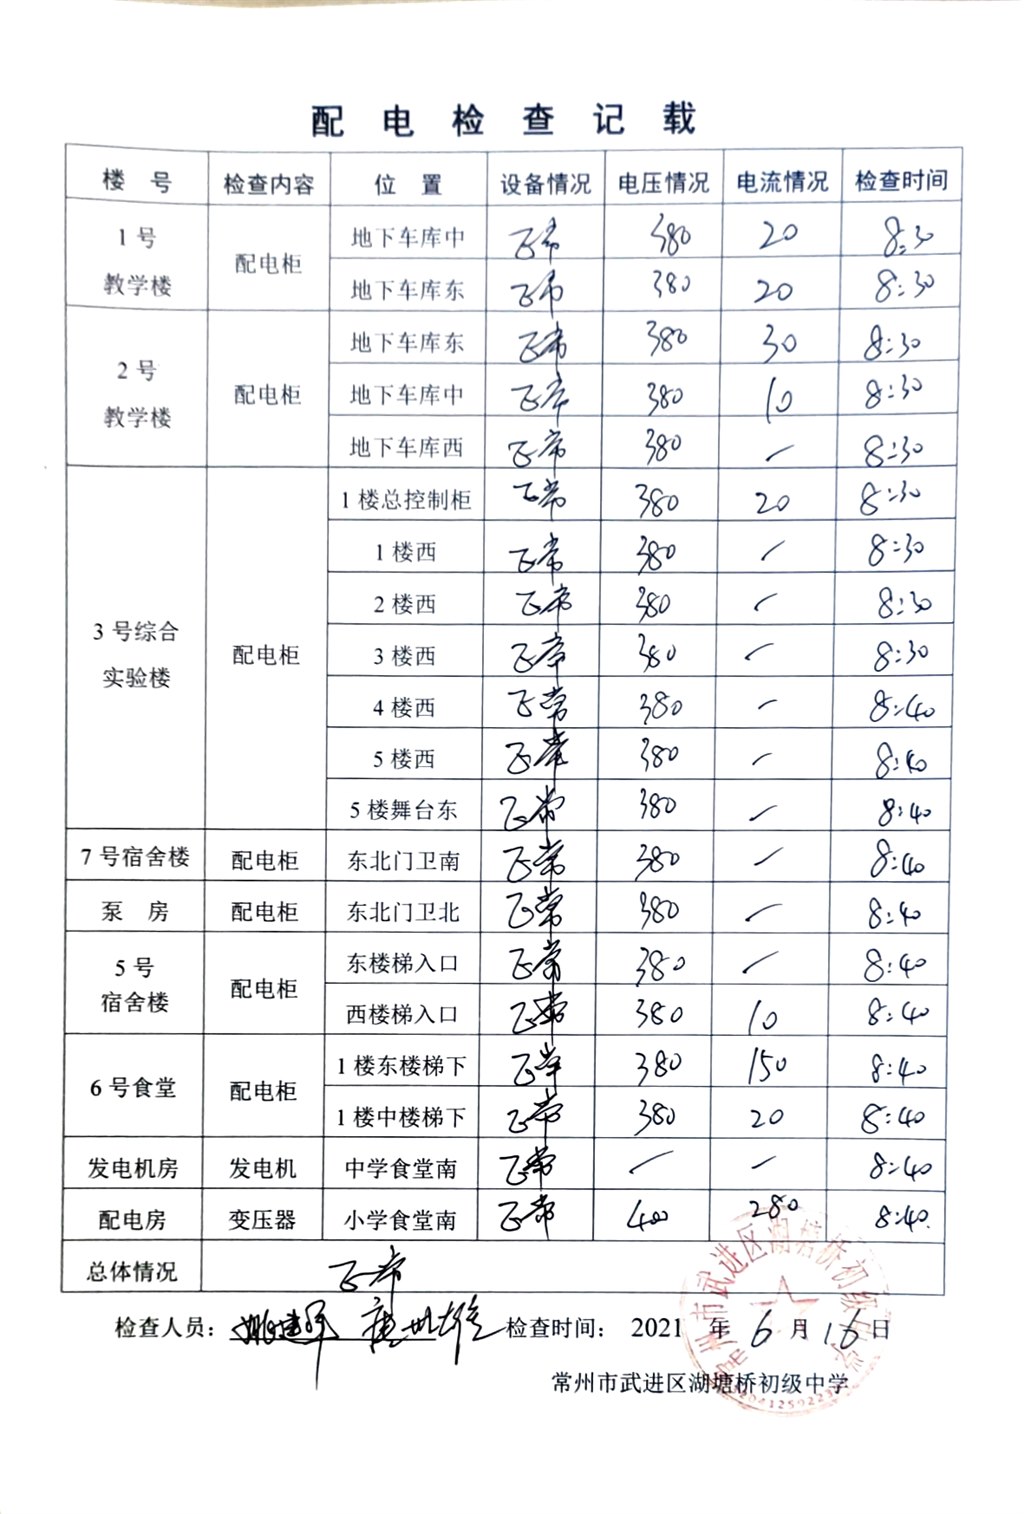 配 电 检 查 记 载
楼 号 检查内容 位 置 设备情况 电压情况 电流情况 检查时间
1号 教学楼 配电柜 地下车库中 正常 380 20 8:30
地下车库东 正常 380 20 8:30
2号 教学楼 配电柜 地下车库东 正常 380 30 8:30
地下车库中 正常 380 10 8:30
地下车库西 正常 380 / 8:30
3号综合 实验楼 配电柜 1楼总控制柜 正常 380 20 8:30
1楼西 正常 380 / 8:30
2楼西 正常 380 / 8:30
3楼西 正常 380 / 8:30
4楼西 正常 380 / 8:40
5楼西 正常 380 / 8:40
5楼舞台东 正常 380 / 8:40
7号宿舍楼 配电柜 东北门卫南 正常 380 / 8:40
泵 房 配电柜 东北门卫北 正常 380 / 8:40
5号 宿舍楼 配电柜 东楼梯入口 正常 380 / 8:40
西楼梯入口 正常 380 10 8:40
6号食堂 配电柜 1楼东楼梯下 正常 380 150 8:40
1楼中楼梯下 正常 380 20 8:40
发电机房 发电机 中学食堂南 正常 / / 8:40
配电房 变压器 小学食堂南 正常 400 280 8:40.
总体情况 正常
检查人员： 检查时间： 2021 年 6 月 16 日
常州市武进区湖塘桥初级中学